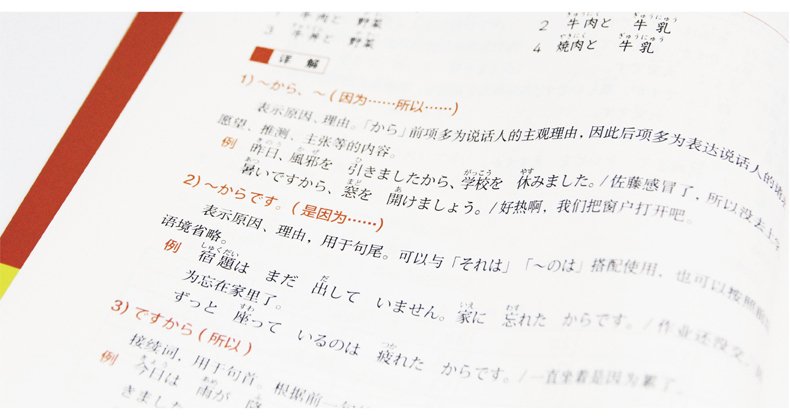 牛肉と 野菜
3 牛丼と 野菜
2 牛肉と 牛乳
4 焼肉と 牛乳
详解
1）～から、～（因为……所以……）
表示原因、理由。「から」前项多为说话人的主观理由，因此后项多为表达说话人的
愿望、推测、主张等的内容。
例 昨日、風邪を 引きましたから、学校を 休みました。/佐藤感冒了，所以没去上学
暑いですから、窓を 開けましょう。/好热啊，我们把窗户打开吧。
2）～からです。（是因为……）
表示原因、理由，用于句尾。可以与「それは」「～のは」搭配使用，也可以按照
语境省略。
例 宿題は まだ 出して いません。家に 忘れた からです。/作业还没交，
为忘在家里了。
ずっと 座って いるのは 疲れた からです。/一直坐着是因为累了。
3）ですから（所以）
接续词，用于句首。根据前一句
例 今日は 雨が 降
きました